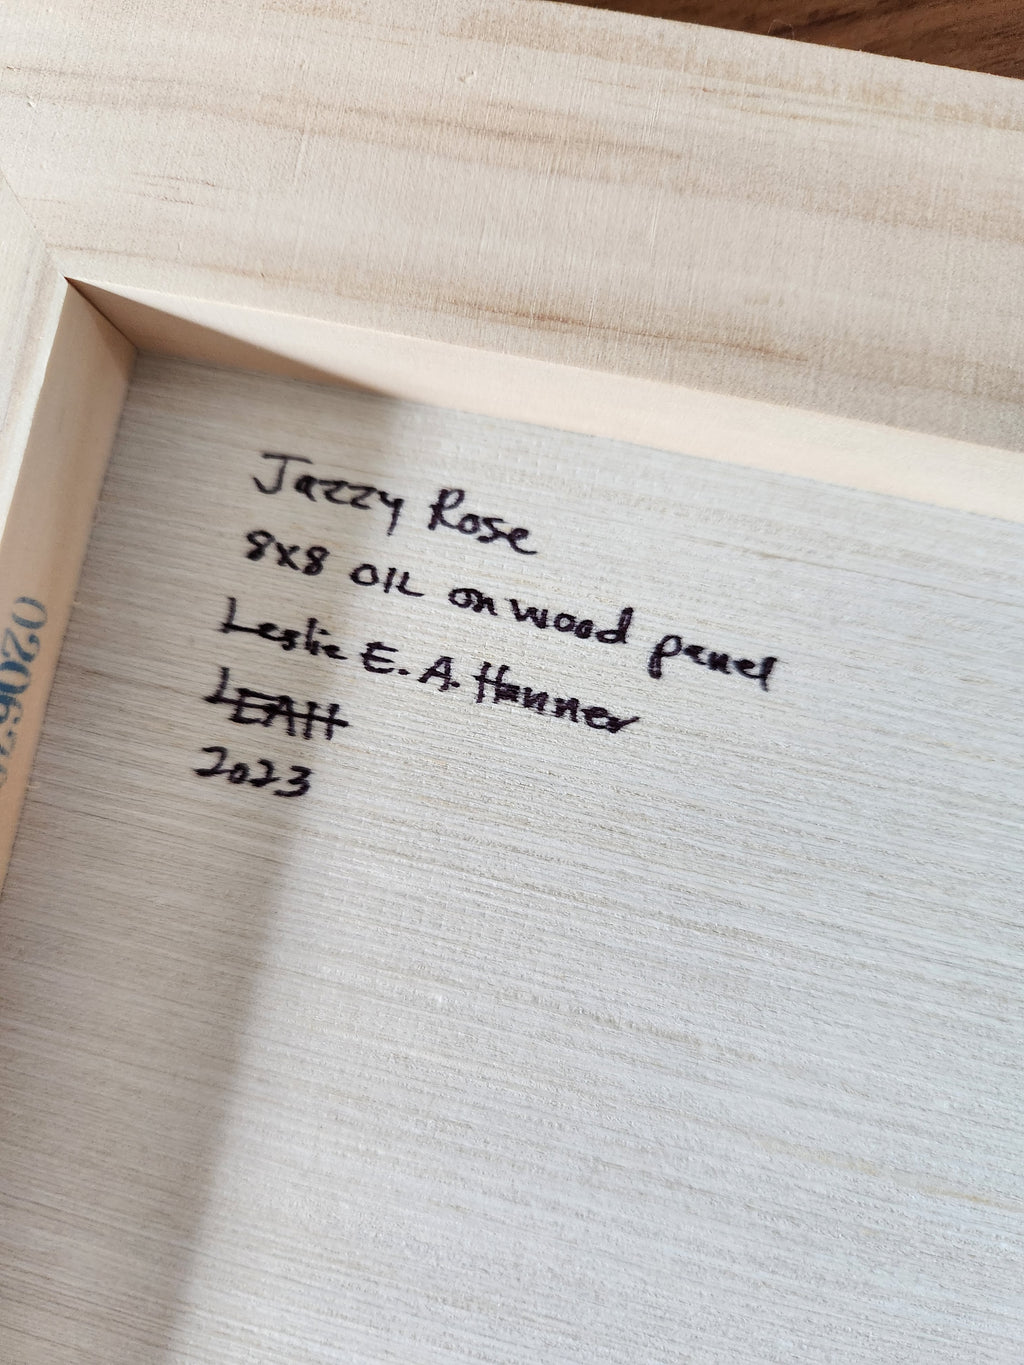 Jazzy Rose
8x8 OIL on wood panel
Leslie E. A. Hanner
LEAH
2023